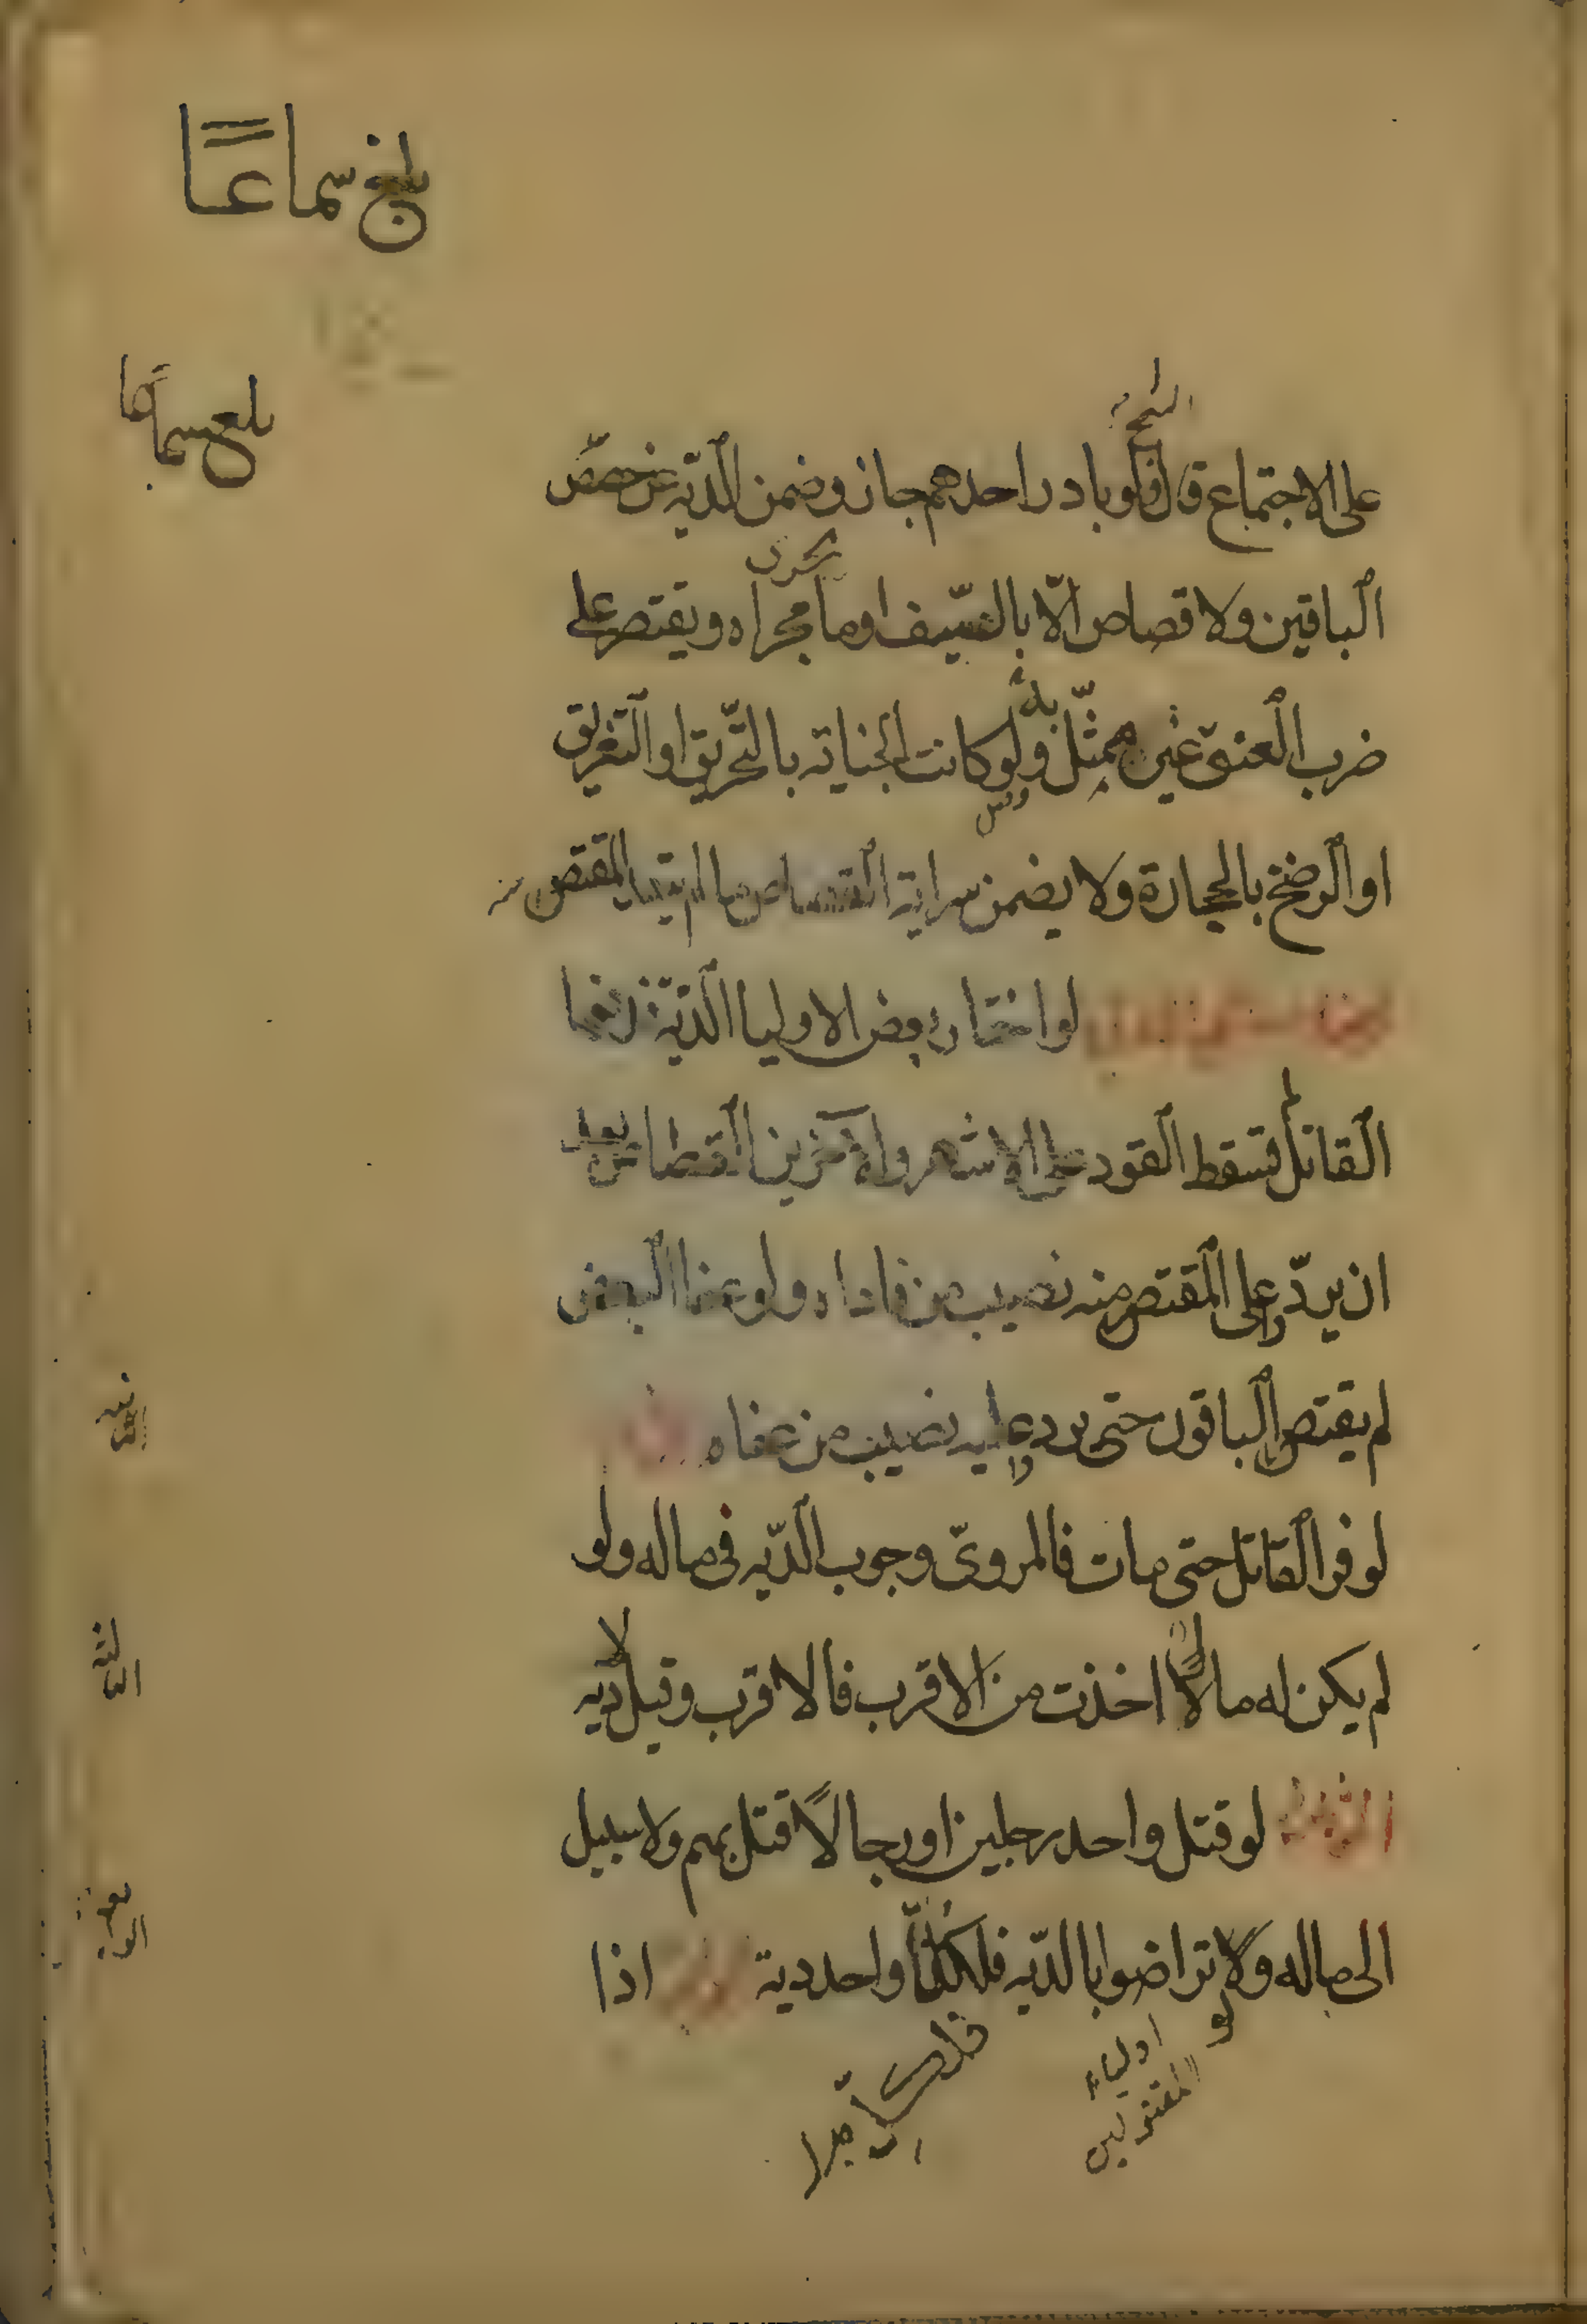 بلغ سماعًا
بلغ سماعا
الشيخ
على الاجتماع قال ولو بادر احدهم جاز وضمن الدّيه عن حصص
يجرى
الباقين ولا قصاص الّا بالسّيف او ما مجراه ويقتصر على
به
ضرب العنق غير ممثّل ولو كانت الجناية بالتّحريق او التغريق
او الرضخ بالحجارة ولا يضمن سراية القصاص ما لم يتعد المقتص
لو اختار بعض الاوليا الدّية فدفعها
القاتل لم يسقط القود على الاشهر وللآخرين القصاص بعد
ان يردّ على المقتص منه نصيب من فاداه ولو عفا البعض
لم يقتص الباقون حتى يرد عليه نصيب من عفاه
لو فر القاتل حتى مات فالمروىّ وجوب الدّيه فى ماله ولو
لم يكن له مال اخذت من الاقرب فالاقرب وقيل لا ديه
الثالثة لو قتل واحد رجلين او رجالًا قتل بهم ولا سبيل
الى ماله ولو تراضوا بالدّيه فلكل واحد دية اذا
لو
اولياء
المقتولين